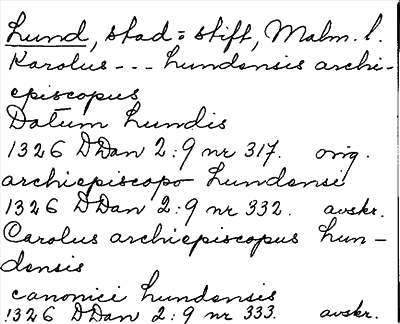 Lund, stad = stift, Malm. l.
Karolus --- lundensis archi-
episcopus
Datum Lundis
1326 DDan 2:9 nr 317. orig.
archiepiscopo Lundensi
1326 DDan 2:9 nr 332. avskr.
Carolus archiepiscopus Lun-
densis
canonici lundensis
1326 DDan 2:9 nr 333. avskr.